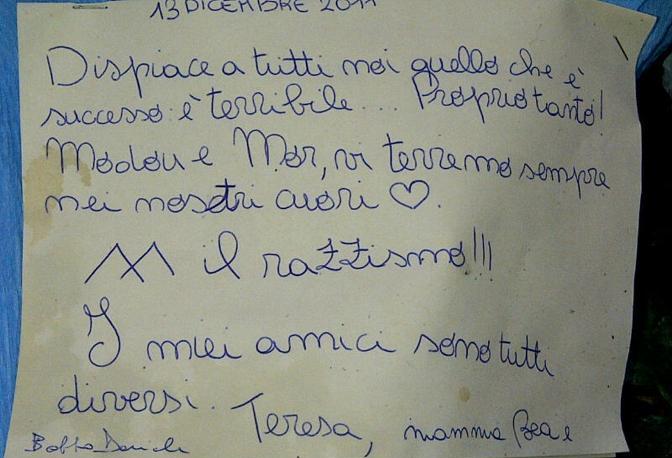 13 DICEMBRE 2011
Dispiace a tutti noi quello che è
successo è terribile.... Proprio tanto!
Modou e Mor, vi terremo sempre
nei nosetri cuori ♡.
M il razzismo!!!
I miei amici sono tutti
diversi. Teresa, mamma Bea e
Babbo Daniele